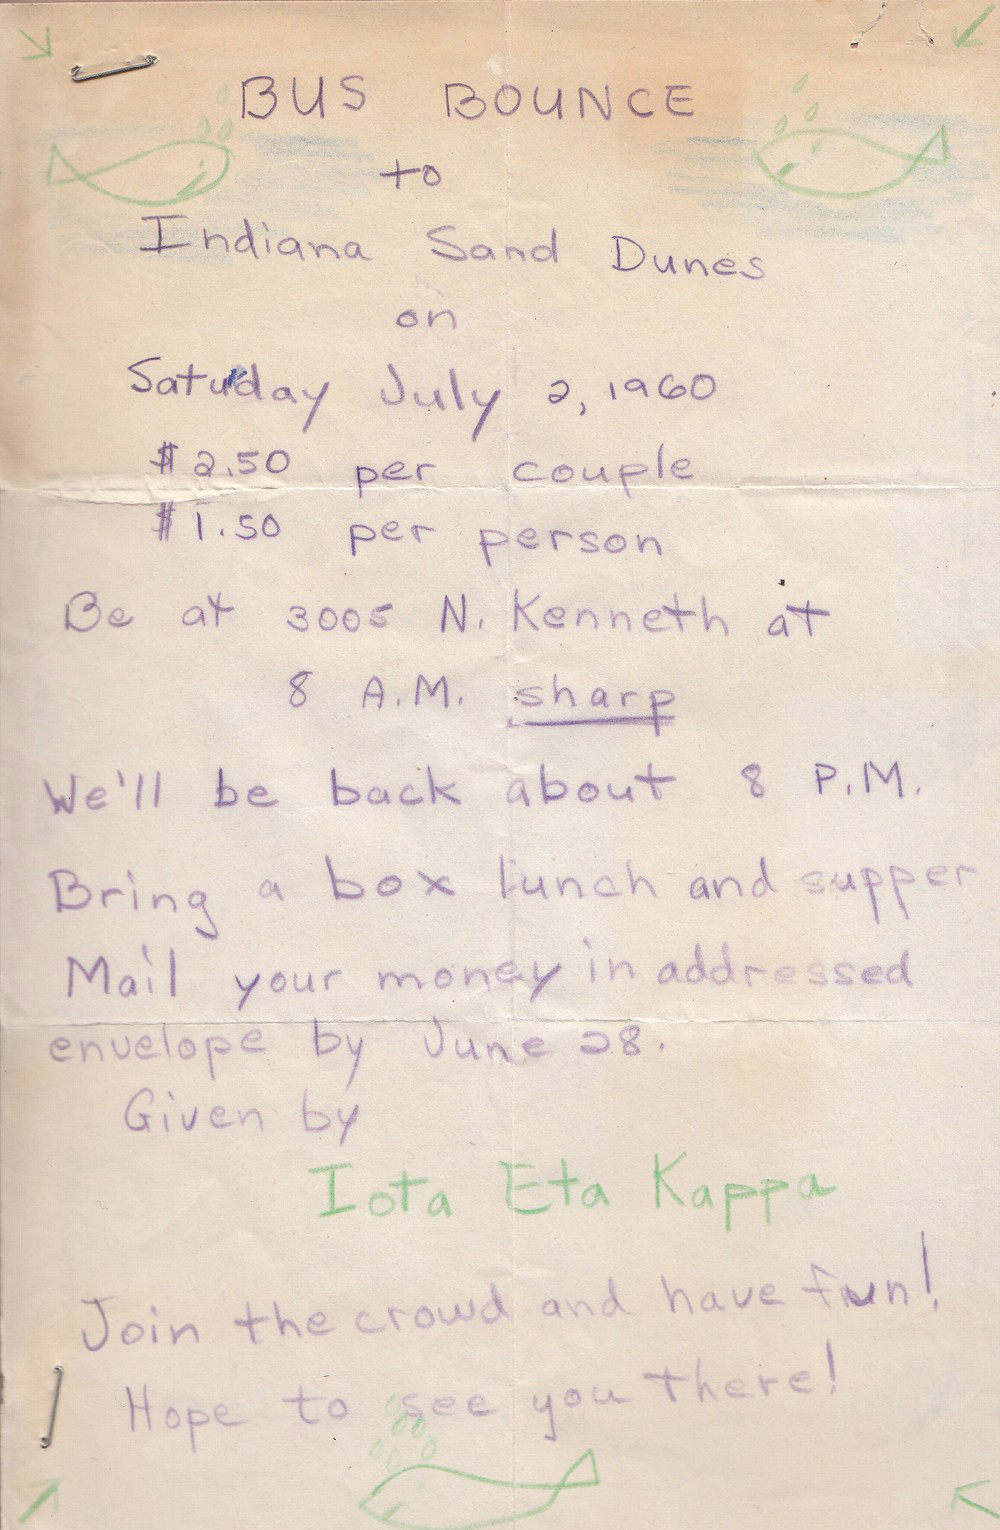 BUS BOUNCE
to
Indiana Sand Dunes
on
Satuday July 2, 1960
$2.50 per couple
$1.50 per person
Be at 3005 N. Kenneth at
8 A.M. sharp
We'll be back about 8 P.M.
Bring a box lunch and supper
Mail your money in addressed
envelope by June 28.
Given by
Iota Eta Kappa
Join the crowd and have fun!
Hope to see you there!